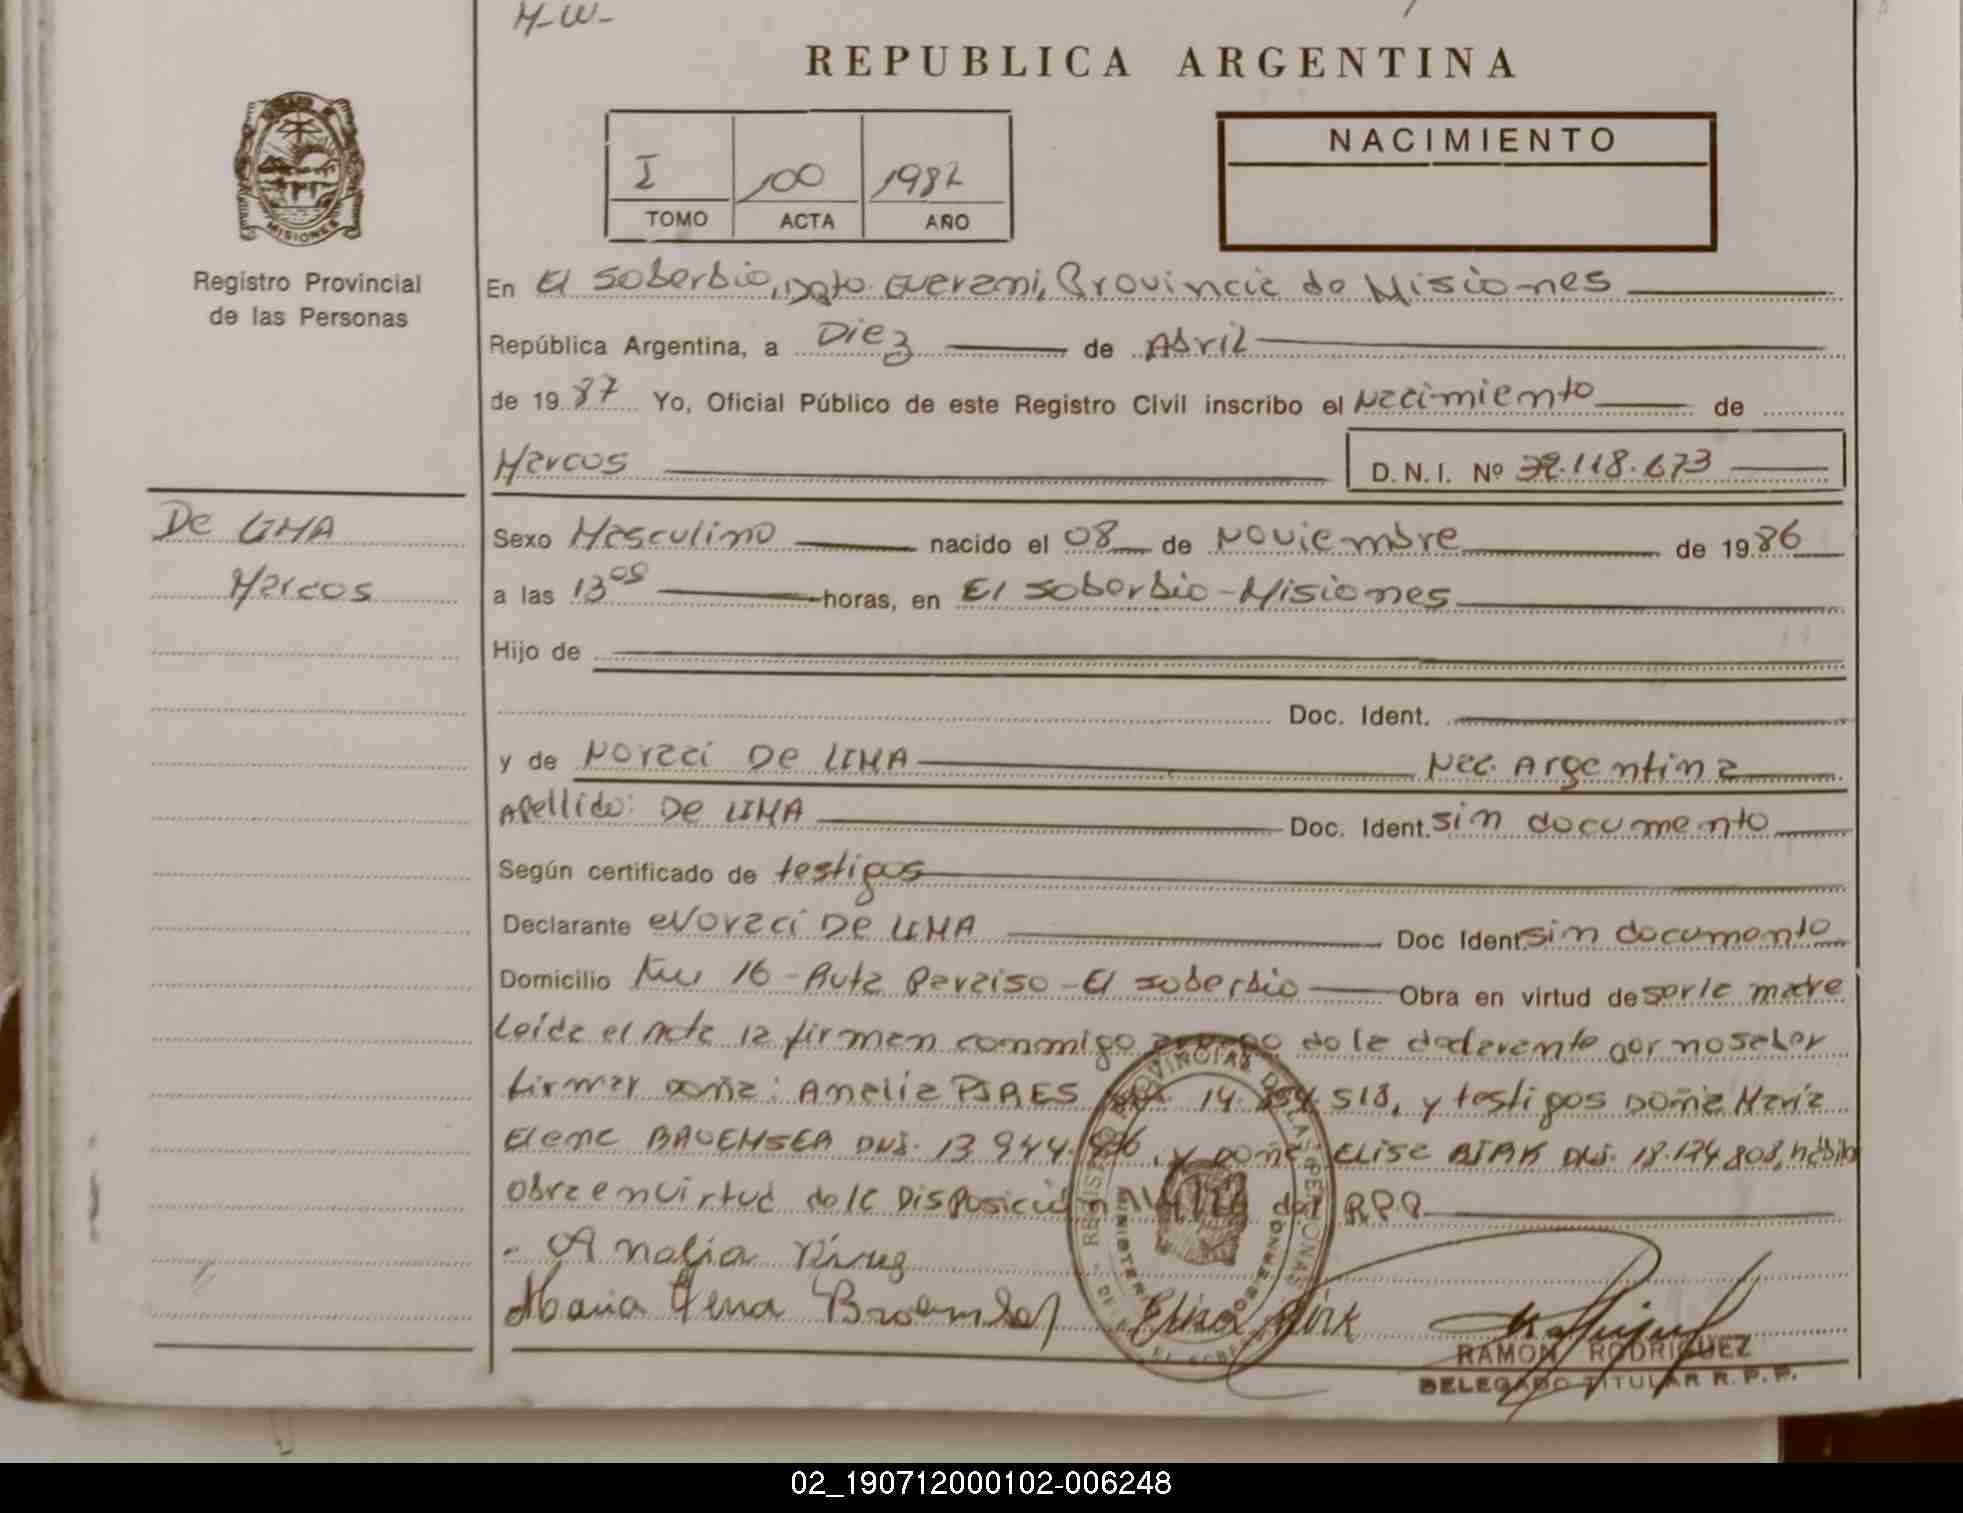 M-W-
REPUBLICA ARGENTINA
I 100 1987
TOMO ACTA AÑO
NACIMIENTO
MISIONES
Registro Provincial
de las Personas
En El Soberbio, Dpto. Guarani, Provincia de Misiones
República Argentina, a Diez de Abril
de 19 87 Yo, Oficial Público de este Registro Civil inscribo el Nacimiento de
Marcos D.N.I. Nº 32.118.673
De LIMA
Marcos
Sexo Masculino nacido el 08 de Noviembre de 19 86
a las 13 horas, en El Soberbio - Misiones
Hijo de
Doc. Ident.
y de Noraci De LIMA Nac. Argentina
Apellido: De LIMA Doc. Ident. sin documento
Según certificado de testigos
Declarante Noraci De LIMA Doc Ident sin documento
Domicilio Km 16 - Ruta Paraiso - El Soberbio Obra en virtud de serla madre
Leida el Acta la firman conmigo a ruego de la declarante por no saber
firmar doña: Analia PIRES 14. 518, y testigos Doña Maria
Elena DNI. 13 944. y doña Elisa BIRK DNI. 18.174.808, hábil
obra en virtud de la Disposición del R.P.P.
- Analia
Maria Elena Elisa Birk
RAMON RODRIGUEZ
DELEGADO TITULAR R.P.P.
02_190712000102-006248